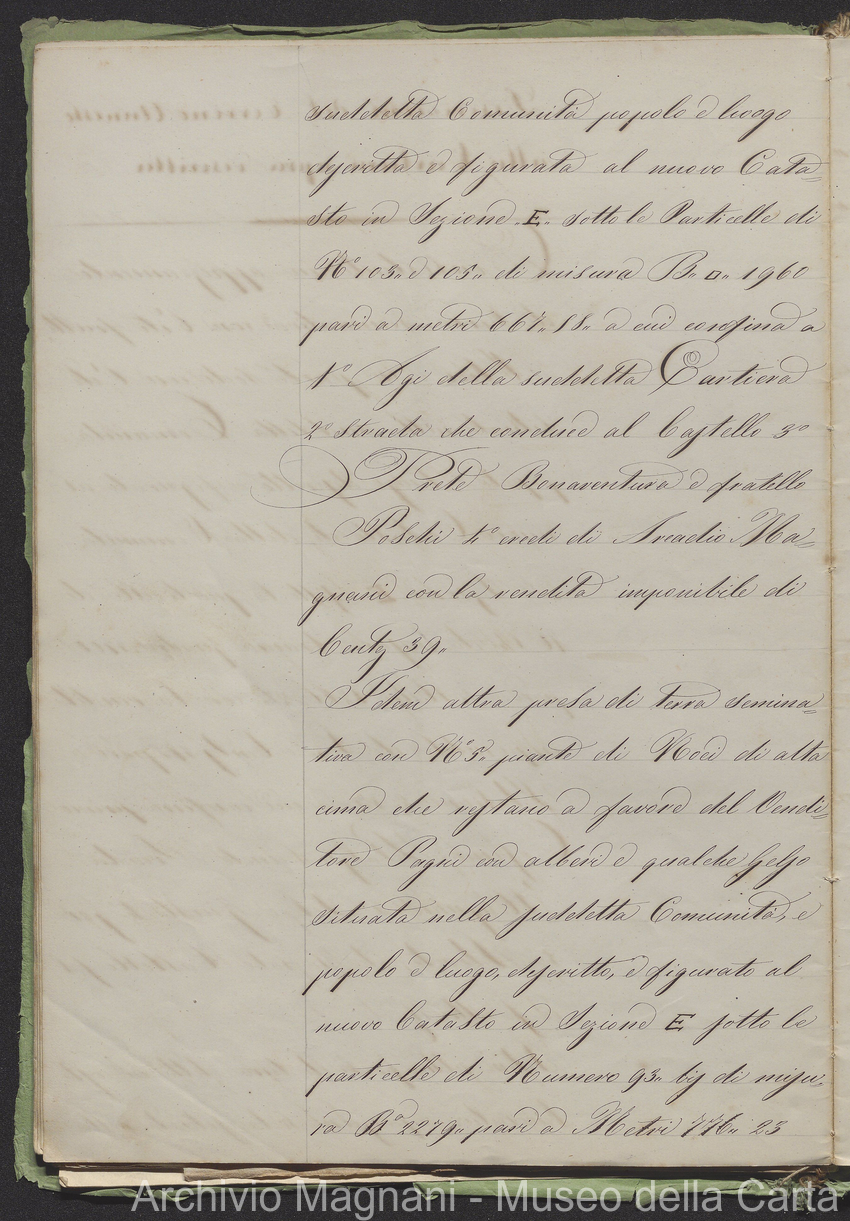 suddetta Comunità popolo e luogo
descritta e figurata al nuovo Cata=
sto in Sezione „E„ sotto le Particelle di
N.º 103„ e 105„ di misura B.ª □„ 1960
pari a metri 667„ 58„ a cui confina a
1º Agi della suddetta Cartiera
2º Strada che conduce al Castello 3º
Prete Bonaventura e fratello
Poschi 4º eredi di Arcadio Ma=
gnani con la rendita imponibile di
Centz 39„
Idem altra presa di terra semina=
tiva con Nº 5„ piante di Noci di alta
cima che restano a favore del Vendi=
tore Pagni con alberi e qualche Gelso
situata nella suddetta Comunità, e
popolo e luogo, descritto, e figurato al
nuovo Catasto in Sezione E sotto le
particelle di Numero 93„ bis di misu=
ra Bª 2279„ pari a Metri 776„ 23
Archivio Magnani - Museo della Carta